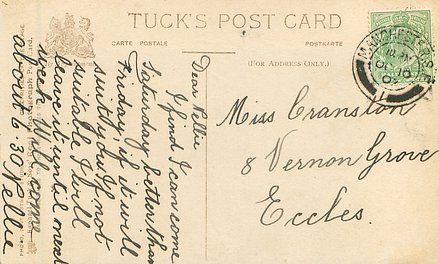 TUCK'S POST CARD
CARTE POSTALE
POSTKARTE
(FOR ADDRESS ONLY.)
MANCHESTER
Dear Nellie
I find I can come
Saturday better than
Friday if it will
suit you if not
suitable I will
leave it until next
week Will come
about 6 30 Nellie
Miss Cranston
8 Vernon Grove
Eccles.